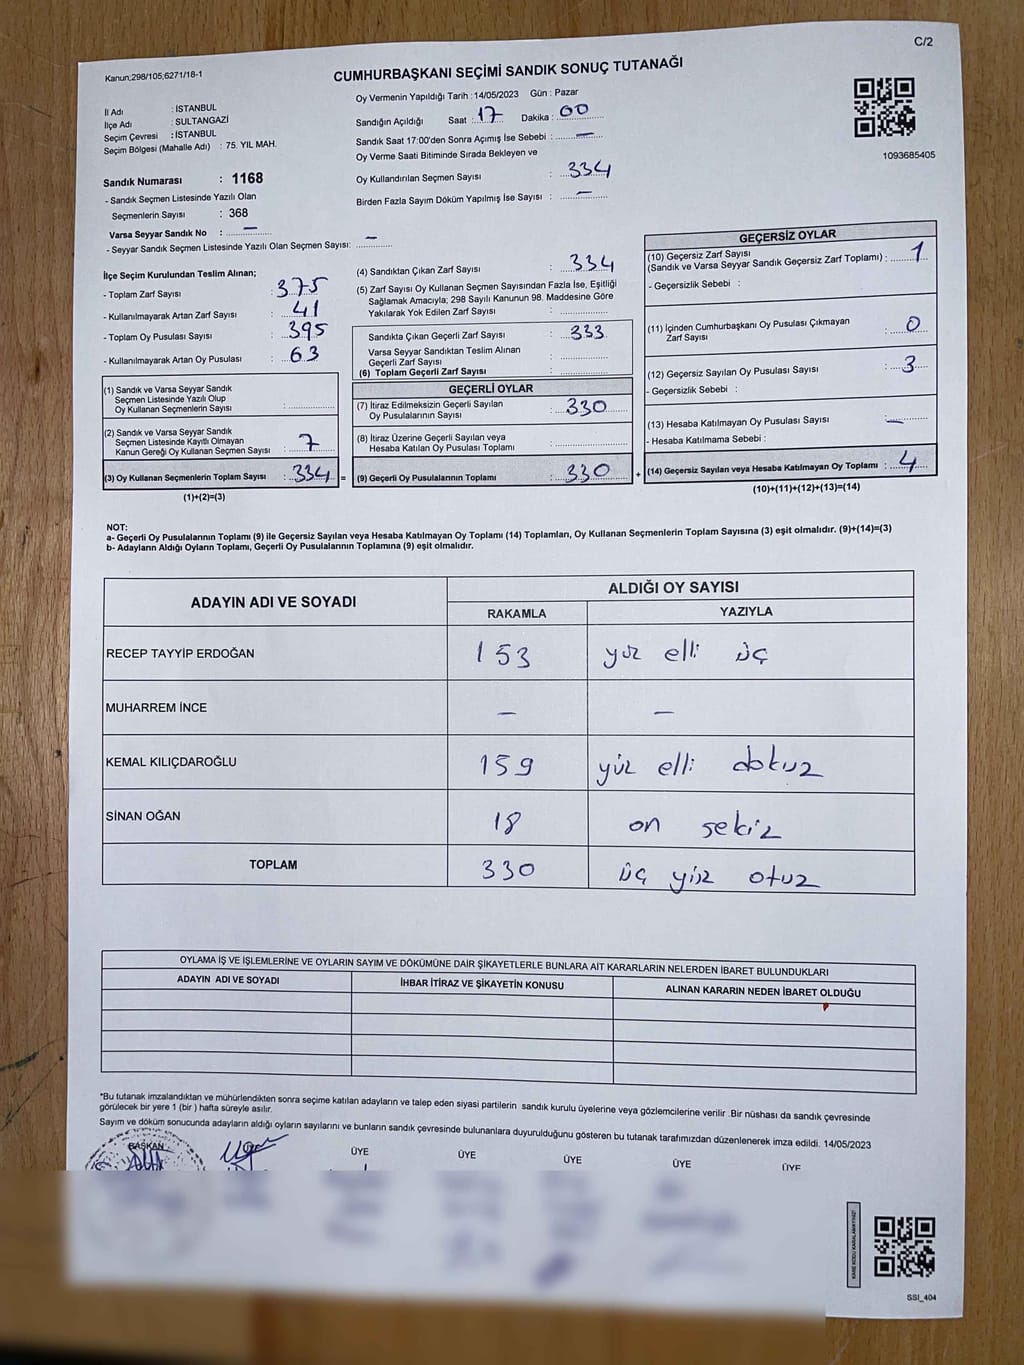 C/2
Kanun;298/105;6271/18-1
CUMHURBAŞKANI SEÇİMİ SANDIK SONUÇ TUTANAĞI
İl Adı : İSTANBUL
İlçe Adı : SULTANGAZİ
Seçim Çevresi : İSTANBUL
Seçim Bölgesi (Mahalle Adı) : 75. YIL MAH.
Sandık Numarası : 1168
- Sandık Seçmen Listesinde Yazılı Olan
Seçmenlerin Sayısı : 368
Varsa Seyyar Sandık No : —
- Seyyar Sandık Seçmen Listesinde Yazılı Olan Seçmen Sayısı: —
Oy Vermenin Yapıldığı Tarih :14/05/2023 Gün : Pazar
Sandığın Açıldığı Saat : 17 Dakika : 00
Sandık Saat 17:00'den Sonra Açımış İse Sebebi : —
Oy Verme Saati Bitiminde Sırada Bekleyen ve
Oy Kullandırılan Seçmen Sayısı : 334
Birden Fazla Sayım Döküm Yapılmış İse Sayısı : —
1093685405
İlçe Seçim Kurulundan Teslim Alınan;
- Toplam Zarf Sayısı : 375
- Kullanılmayarak Artan Zarf Sayısı : 41
- Toplam Oy Pusulası Sayısı : 395
- Kullanılmayarak Artan Oy Pusulası : 63
(1) Sandık ve Varsa Seyyar Sandık
Seçmen Listesinde Yazılı Olup
Oy Kullanan Seçmenlerin Sayısı :
(2) Sandık ve Varsa Seyyar Sandık
Seçmen Listesinde Kayıtlı Olmayan
Kanun Gereği Oy Kullanan Seçmen Sayısı : 7
(3) Oy Kullanan Seçmenlerin Toplam Sayısı : 334 =
(1)+(2)=(3)
(4) Sandıktan Çıkan Zarf Sayısı : 334
(5) Zarf Sayısı Oy Kullanan Seçmen Sayısından Fazla İse, Eşitliği
Sağlamak Amacıyla; 298 Sayılı Kanunun 98. Maddesine Göre
Yakılarak Yok Edilen Zarf Sayısı :
Sandıkta Çıkan Geçerli Zarf Sayısı : 333
Varsa Seyyar Sandıktan Teslim Alınan
Geçerli Zarf Sayısı :
(6) Toplam Geçerli Zarf Sayısı :
GEÇERLİ OYLAR
(7) İtiraz Edilmeksizin Geçerli Sayılan
Oy Pusulalarının Sayısı : 330
(8) İtiraz Üzerine Geçerli Sayılan veya
Hesaba Katılan Oy Pusulası Toplamı :
(9) Geçerli Oy Pusulalarının Toplamı : 330 +
GEÇERSİZ OYLAR
(10) Geçersiz Zarf Sayısı
(Sandık ve Varsa Seyyar Sandık Geçersiz Zarf Toplamı) : 1
- Geçersizlik Sebebi :
(11) İçinden Cumhurbaşkanı Oy Pusulası Çıkmayan
Zarf Sayısı : 0
(12) Geçersiz Sayılan Oy Pusulası Sayısı : 3
- Geçersizlik Sebebi :
(13) Hesaba Katılmayan Oy Pusulası Sayısı : —
- Hesaba Katılmama Sebebi :
(14) Geçersiz Sayılan veya Hesaba Katılmayan Oy Toplamı : 4
(10)+(11)+(12)+(13)=(14)
NOT:
a- Geçerli Oy Pusulalarının Toplamı (9) ile Geçersiz Sayılan veya Hesaba Katılmayan Oy Toplamı (14) Toplamları, Oy Kullanan Seçmenlerin Toplam Sayısına (3) eşit olmalıdır. (9)+(14)=(3)
b- Adayların Aldığı Oyların Toplamı, Geçerli Oy Pusulalarının Toplamına (9) eşit olmalıdır.
ADAYIN ADI VE SOYADI ALDIĞI OY SAYISI
RAKAMLA YAZIYLA
RECEP TAYYİP ERDOĞAN 153 yüz elli üç
MUHARREM İNCE — —
KEMAL KILIÇDAROĞLU 159 yüz elli dokuz
SİNAN OĞAN 18 on sekiz
TOPLAM 330 üç yüz otuz
OYLAMA İŞ VE İŞLEMLERİNE VE OYLARIN SAYIM VE DÖKÜMÜNE DAİR ŞİKAYETLERLE BUNLARA AİT KARARLARIN NELERDEN İBARET BULUNDUKLARI
ADAYIN ADI VE SOYADI İHBAR İTİRAZ VE ŞİKAYETİN KONUSU ALINAN KARARIN NEDEN İBARET OLDUĞU
*Bu tutanak imzalandıktan ve mühürlendikten sonra seçime katılan adayların ve talep eden siyasi partilerin sandık kurulu üyelerine veya gözlemcilerine verilir .Bir nüshası da sandık çevresinde
görülecek bir yere 1 (bir ) hafta süreyle asılır.
Sayım ve döküm sonucunda adayların aldığı oyların sayılarını ve bunların sandık çevresinde bulunanlara duyurulduğunu gösteren bu tutanak tarafımızdan düzenlenerek imza edildi. 14/05/2023
BAŞKAN ÜYE ÜYE ÜYE ÜYE ÜYE
KARE KODU KARALAMAYINIZ!
SSI_404